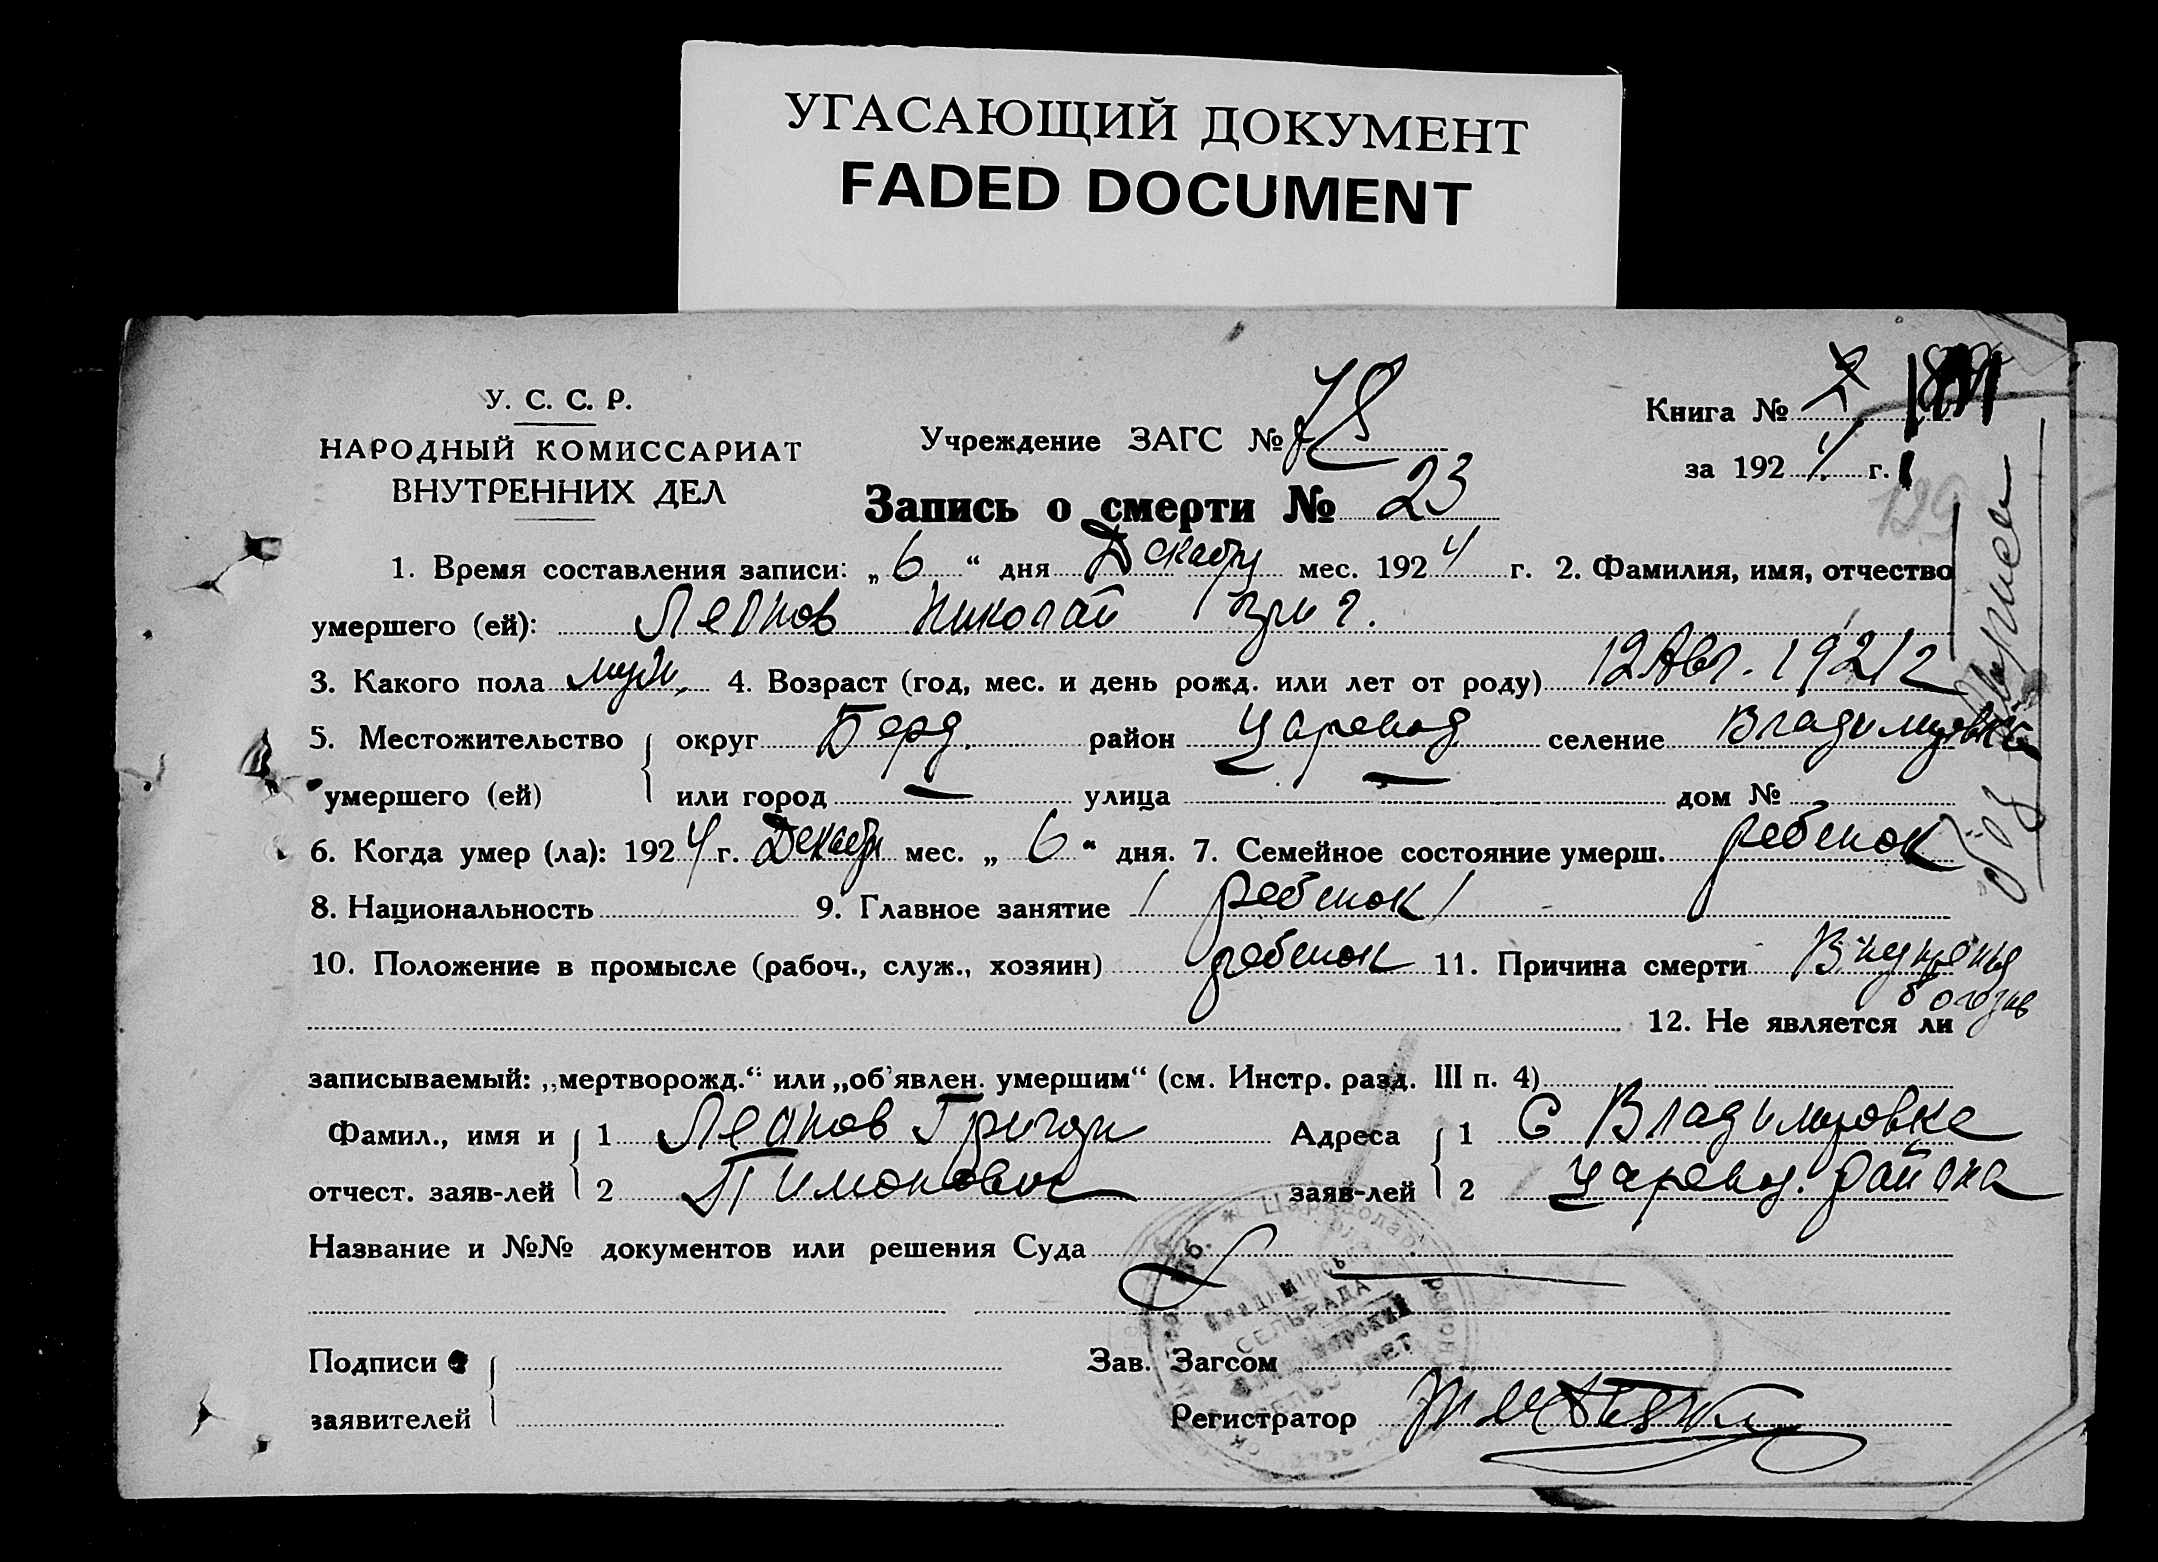 УГАСАЮЩИЙ ДОКУМЕНТ
FADED DOCUMENT
У. С. С. Р.
НАРОДНЫЙ КОМИССАРИАТ
ВНУТРЕННИХ ДЕЛ
Учреждение ЗАГС № 78
Книга №
за 1924 г.
129
Запись о смерти № 23
1. Время составления записи: „6“ дня Декабр мес. 1924 г. 2. Фамилия, имя, отчество
умершего (ей): Леонов Николай Григ.
3. Какого пола муж. 4. Возраст (год, мес. и день рожд. или лет от роду) 12 Авг.
5. Местожительство округ Берд. район Царевод селение Владимировка
умершего (ей) или город — улица — дом №
6. Когда умер (ла): 1924 г. Декабр мес. „6“ дня. 7. Семейное состояние умерш. ребенок
8. Национальность 9. Главное занятие ребенок
10. Положение в промысле (рабоч., служ., хозяин) ребенок 11. Причина смерти
12. Не является ли
записываемый: „мертворожд.“ или „об'явлен. умершим“ (см. Инстр. разд. III п. 4)
Фамил., имя и 1 Леонов Григори Адреса 1 С Владимировка
отчест. заяв-лей 2 Тимонович заяв-лей 2 Царевод. района
Название и №№ документов или решения Суда
СЕЛЬРАДА
Подписи Зав. Загсом
заявителей Регистратор